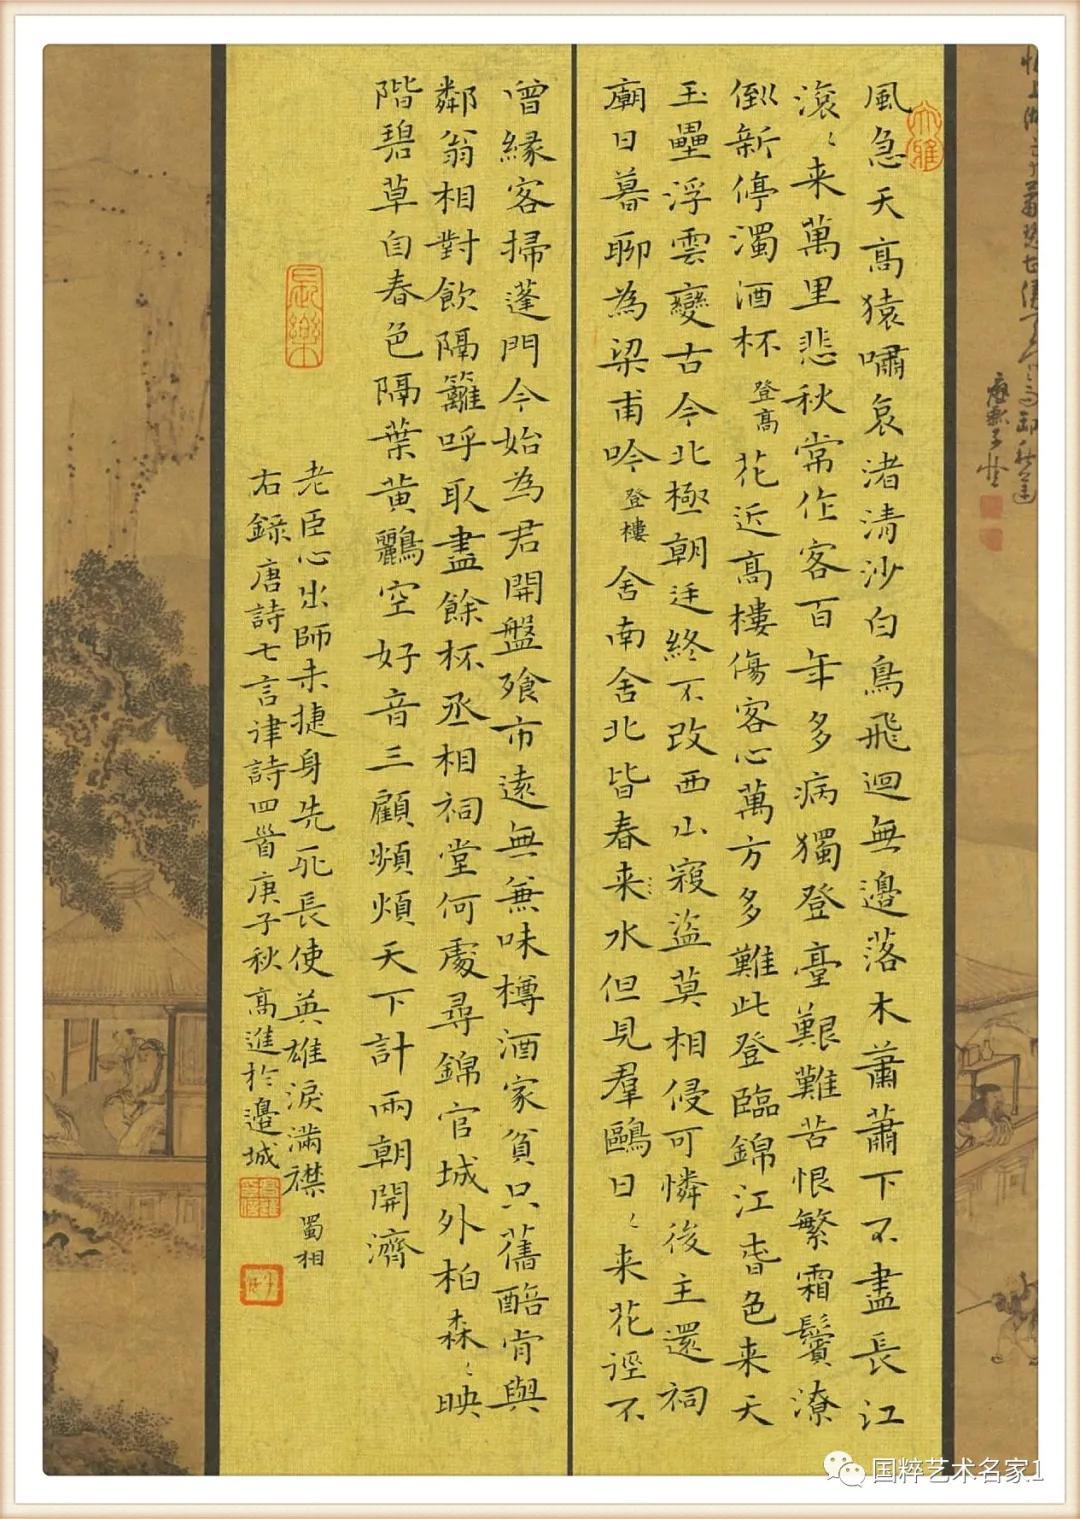 大雅
風急天高猿嘯哀渚清沙白鳥飛迴無邊落木蕭蕭下不盡長江
滾〻来萬里悲秋常作客百年多病獨登臺艱難苦恨繁霜鬢潦
倒新停濁酒杯 登高 花近高樓傷客心萬方多難此登臨錦江春色来天
玉壘浮雲變古今北極朝廷終不改西山寇盜莫相侵可憐後主還祠
廟日暮聊為梁甫吟 登樓 舍南舍北皆春来水但見羣鷗日〻来花逕不
曾緣客掃蓬門今始為君開盤飧市遠無兼味樽酒家貧只舊醅肯與
鄰翁相對飲隔籬呼取盡餘杯丞相祠堂何處尋錦官城外柏森〻映
階碧草自春色隔葉黃鸝空好音三顧頻煩天下計兩朝開濟
長樂
老臣心出師未捷身先死長使英雄淚滿襟 蜀相
右錄唐詩七言律詩四首庚子秋高進於邊城
国粹艺术名家1